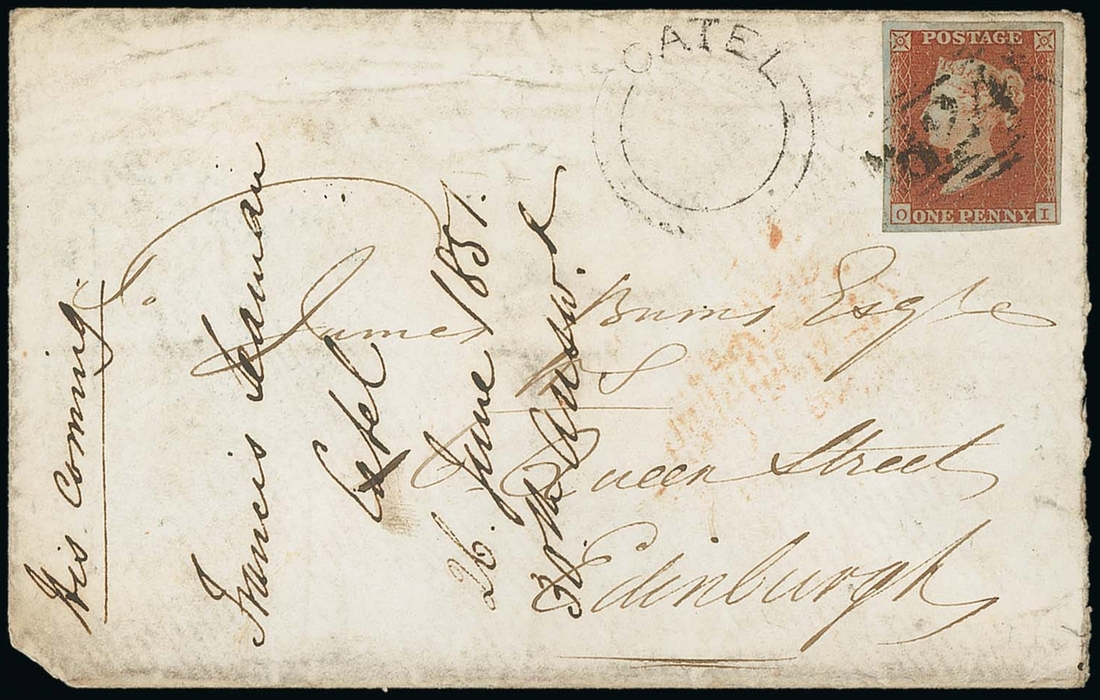 CATEL
POSTAGE
ONE PENNY
O I
James Burns Esqre
WS
Queen Street
Edinburgh
His coming
Francis Seaman
Catel
26. June 1851.
30th Answd